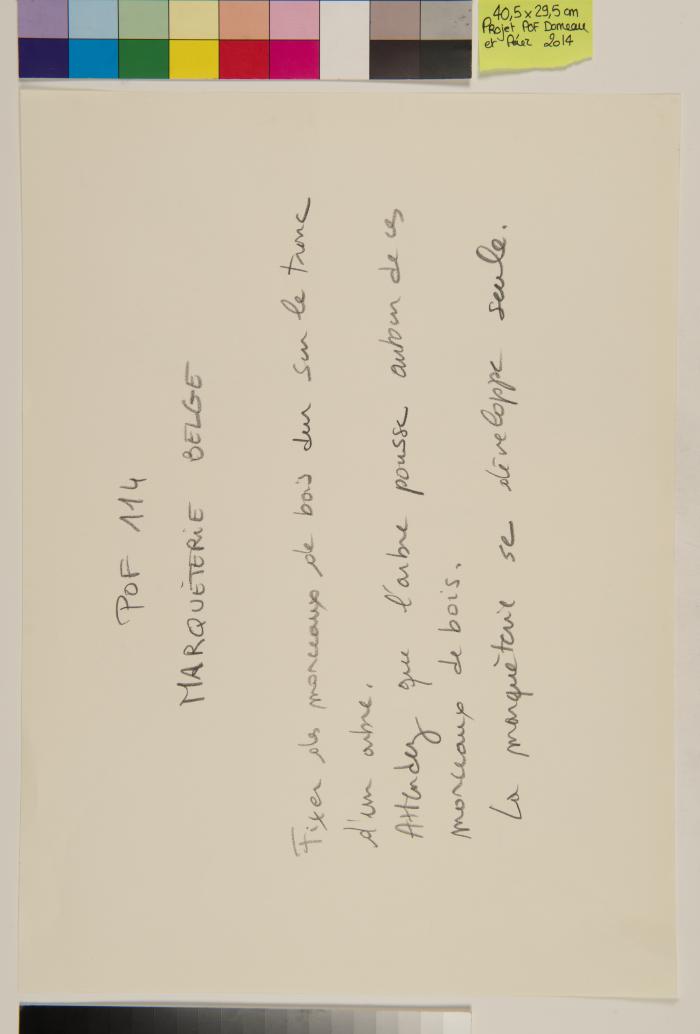 40,5 x 29,5 cm
Projet POF Domeau
et Pérez 2014
POF 114
MARQUÈTERIE BELGE
Fixer des morceaux de bois dur sur le tronc
d'un arbre.
Attendez que l'arbre pousse autour de ces
morceaux de bois.
La marquèterie se développe seule.